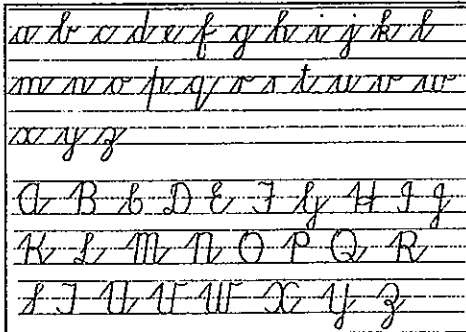 a b c d e f g h i j k l
m n o p q r s t u v w
x y z
A B C D E F G H I J
K L M N O P Q R
S T U V W X Y Z